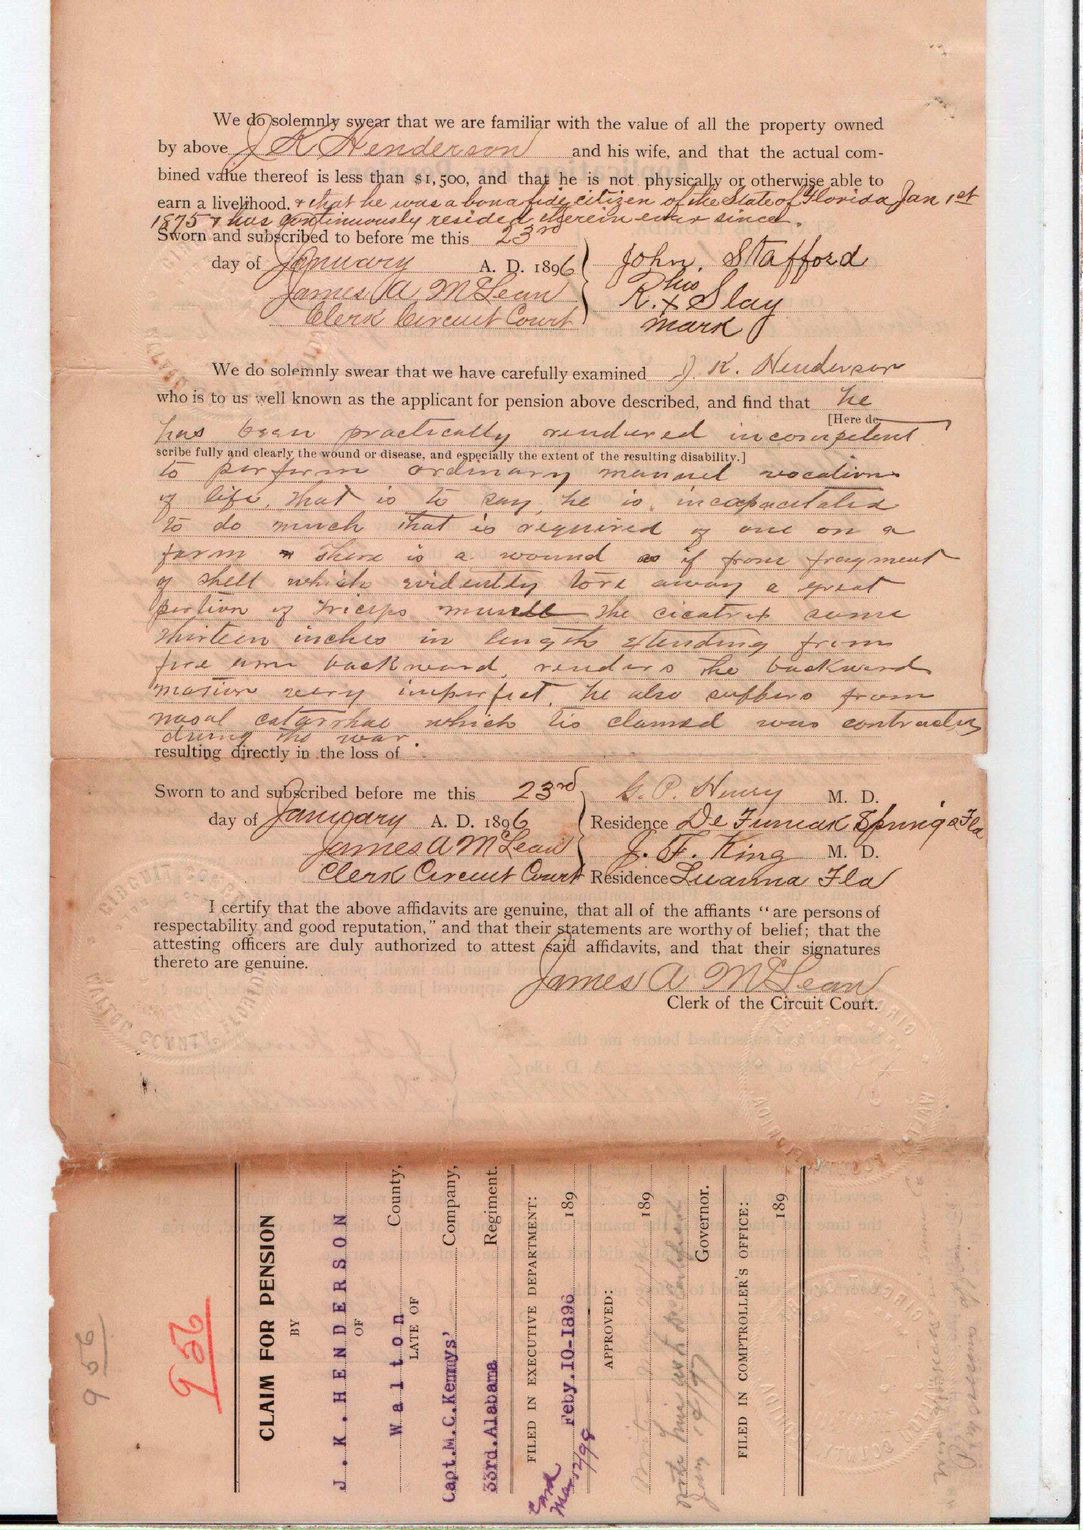 We do solemnly swear that we are familiar with the value of all the property owned
by above J K Henderson and his wife, and that the actual com-
bined value thereof is less than $1,500, and that he is not physically or otherwise able to
earn a livelihood. & that he was a bona fide citizen of the State of Florida Jan 1st
1875 & has continuously resided therein ever since.
Sworn and subscribed to before me this 23rd
day of January A. D. 1896
James A McLean
Clerk Circuit Court
John. Stafford
his
R. x Slay
mark
We do solemnly swear that we have carefully examined J. K. Henderson
who is to us well known as the applicant for pension above described, and find that he
[Here de-
has been practically rendered incompetent
scribe fully and clearly the wound or disease, and especially the extent of the resulting disability.]
to perform ordinary manuel vocations
of life, that is to say, he is incapacitated
to do much that is required of one on a
farm there is a wound as if from fragment
of shell which evidently tore away a great
portion of triceps muscle the cicatrix some
thirteen inches in length extending from
fore arm backward, renders the backward
motion very imperfect, he also suffers from
nasal catarrhae which tis claimed was contracted
during the war.
resulting directly in the loss of
Sworn to and subscribed before me this 23rd
day of January A. D. 1896
James A McLean
Clerk Circuit Court
G. P. Henry M. D.
Residence De Funiak Springs Fla
J. F. King M. D.
Residence Luanna Fla
I certify that the above affidavits are genuine, that all of the affiants "are persons of
respectability and good reputation," and that their statements are worthy of belief; that the
attesting officers are duly authorized to attest said affidavits, and that their signatures
thereto are genuine.
James A McLean
Clerk of the Circuit Court.
956
956
CLAIM FOR PENSION
BY
J.K.HENDERSON
OF
Walton County,
LATE OF
Capt.M.C.Kennys' Company,
33rd.Alabama Regiment.
FILED IN EXECUTIVE DEPARTMENT:
Feby.10-1896 189
Card
Mar 12/98
APPROVED:
189
Governor.
FILED IN COMPTROLLER'S OFFICE:
189